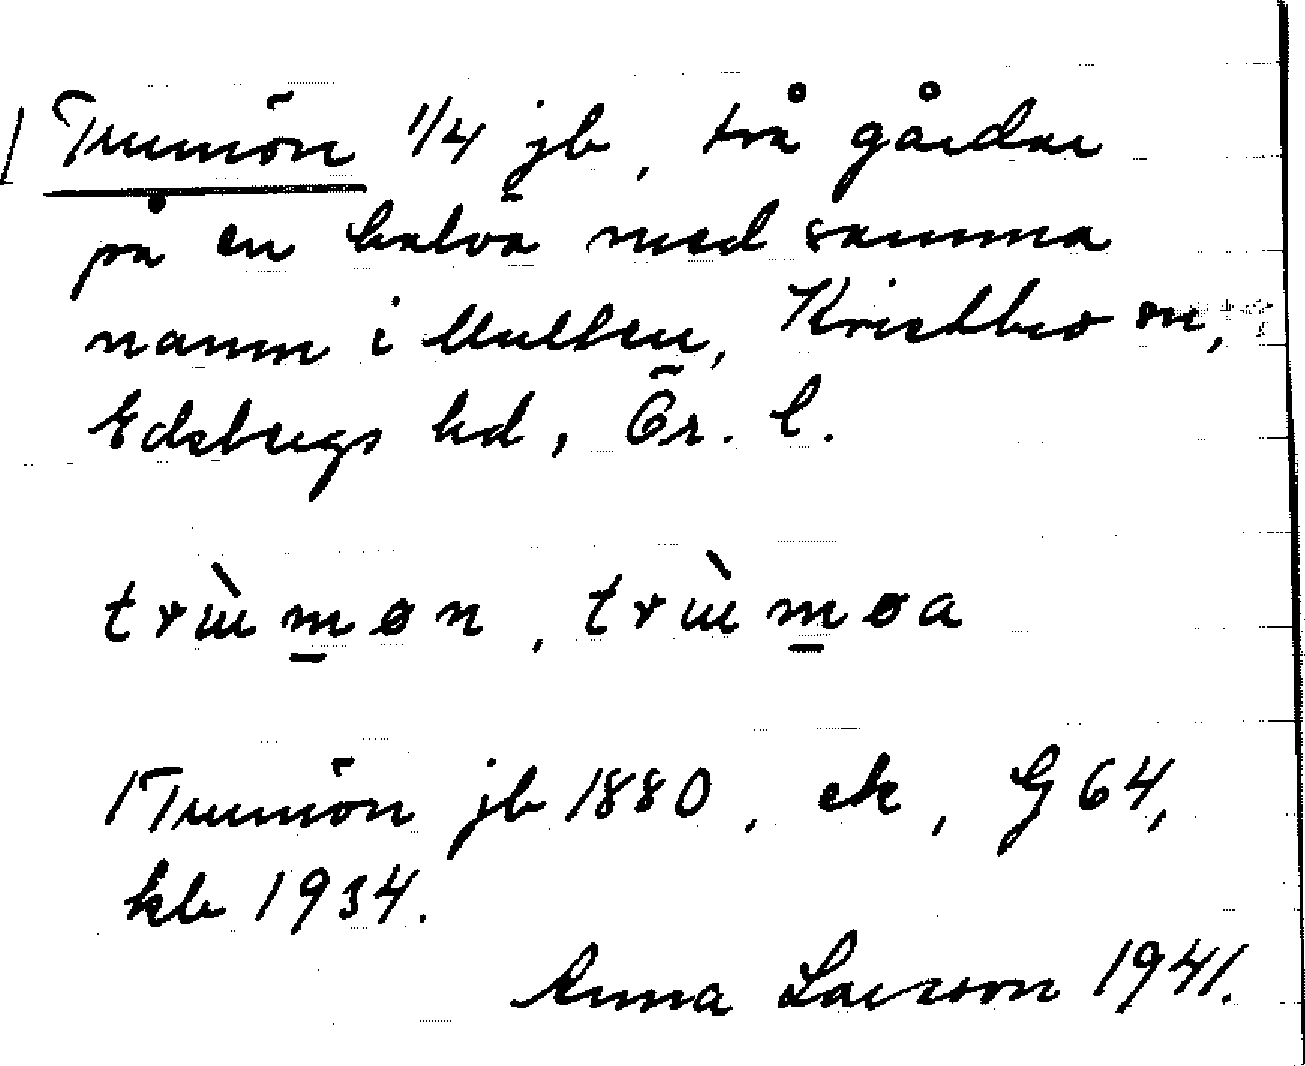 Trumön 1/4 jb, två gårdar
på en halvö med samma
namn i Multen, Knistbro sn,
Edsbergs hd, Ör. l.
trùmøn, trùmøa
Trumön jb 1880, ek, G 64,
kb 1934.
Anna Larsson 1941.